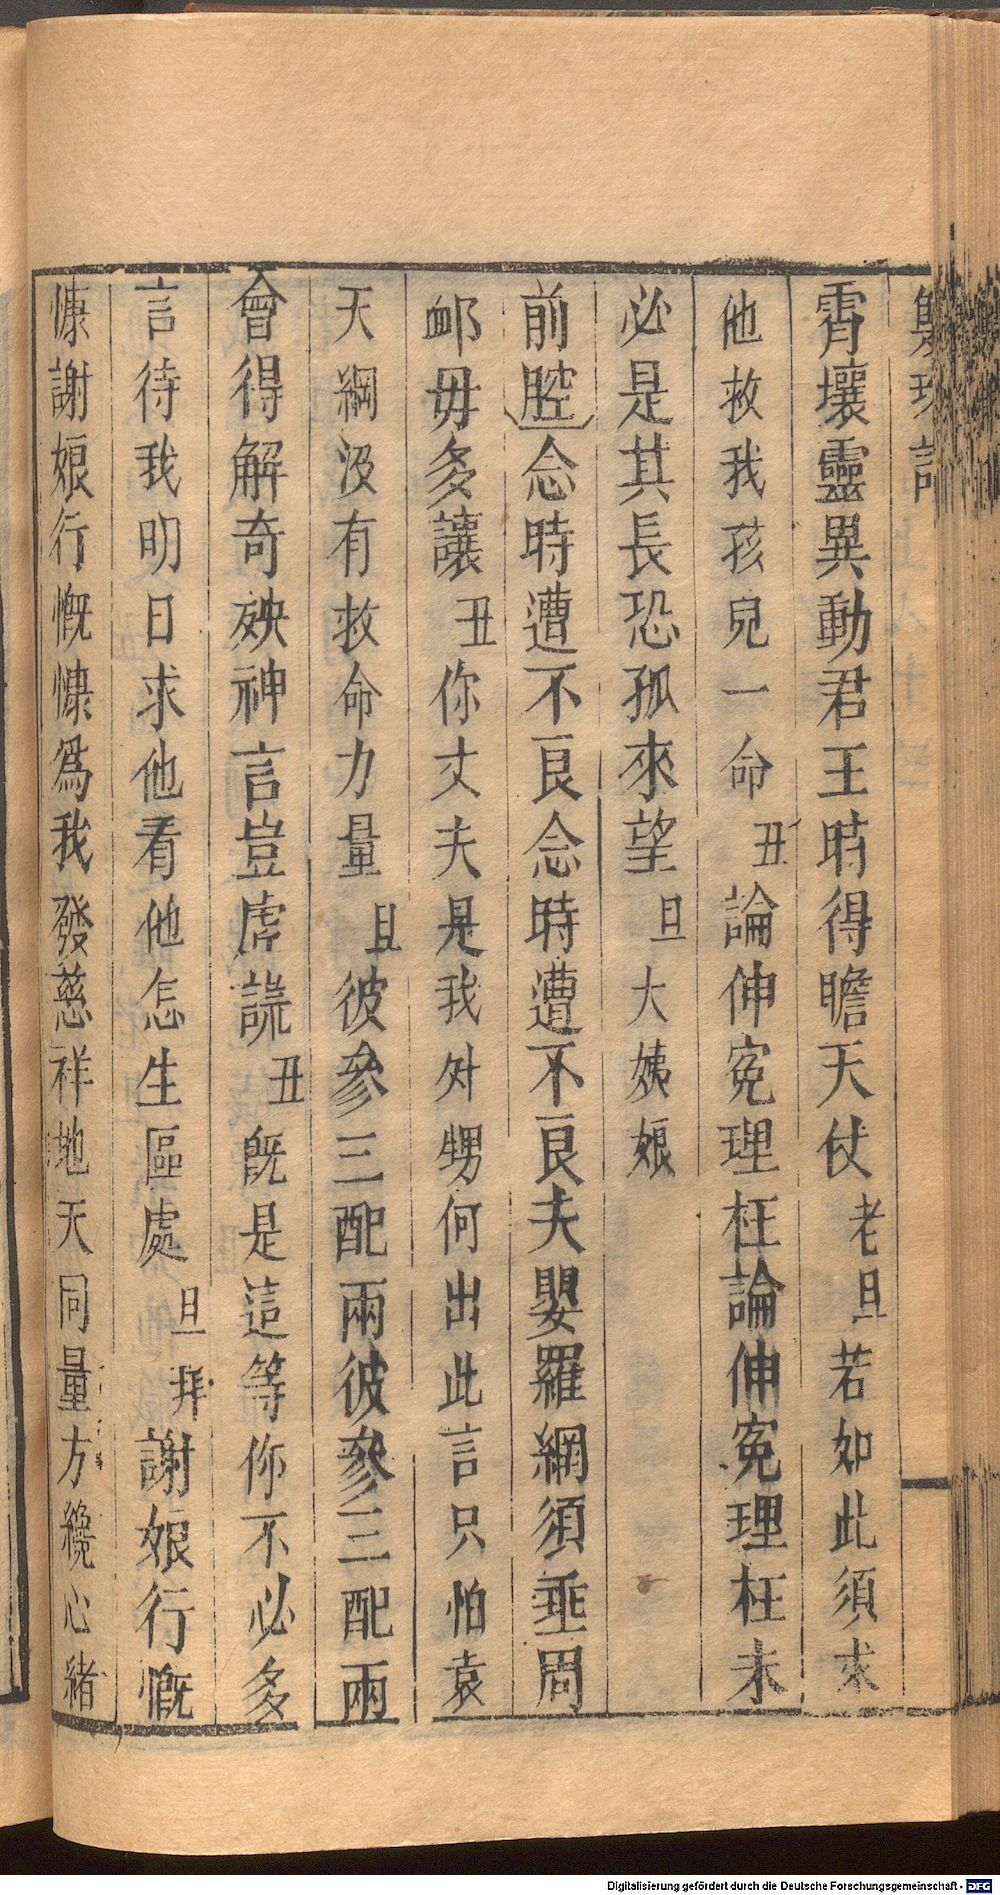 霄壤靈異動君王時得瞻天仗老旦若如此須求
他救我孩兒一命丑論伸寃理枉論伸寃理枉未
必是其長恐孤來望旦大姨娘
前腔念時遭不良念時遭不良夫嬰羅網須垂周
䘏毋多讓丑你丈夫是我外甥何出此言只怕袁
天綱沒有救命力量旦彼參三配兩彼參三配兩
會得解奇殃神言豈虗謊丑旣是這等你不必多
言待我明日求他看他怎生區處旦拜謝娘行慨
慷謝娘行慨慷爲我發慈祥地天同量方纔心緒
Digitalisierung gefördert durch die Deutsche Forschungsgemeinschaft - DFG